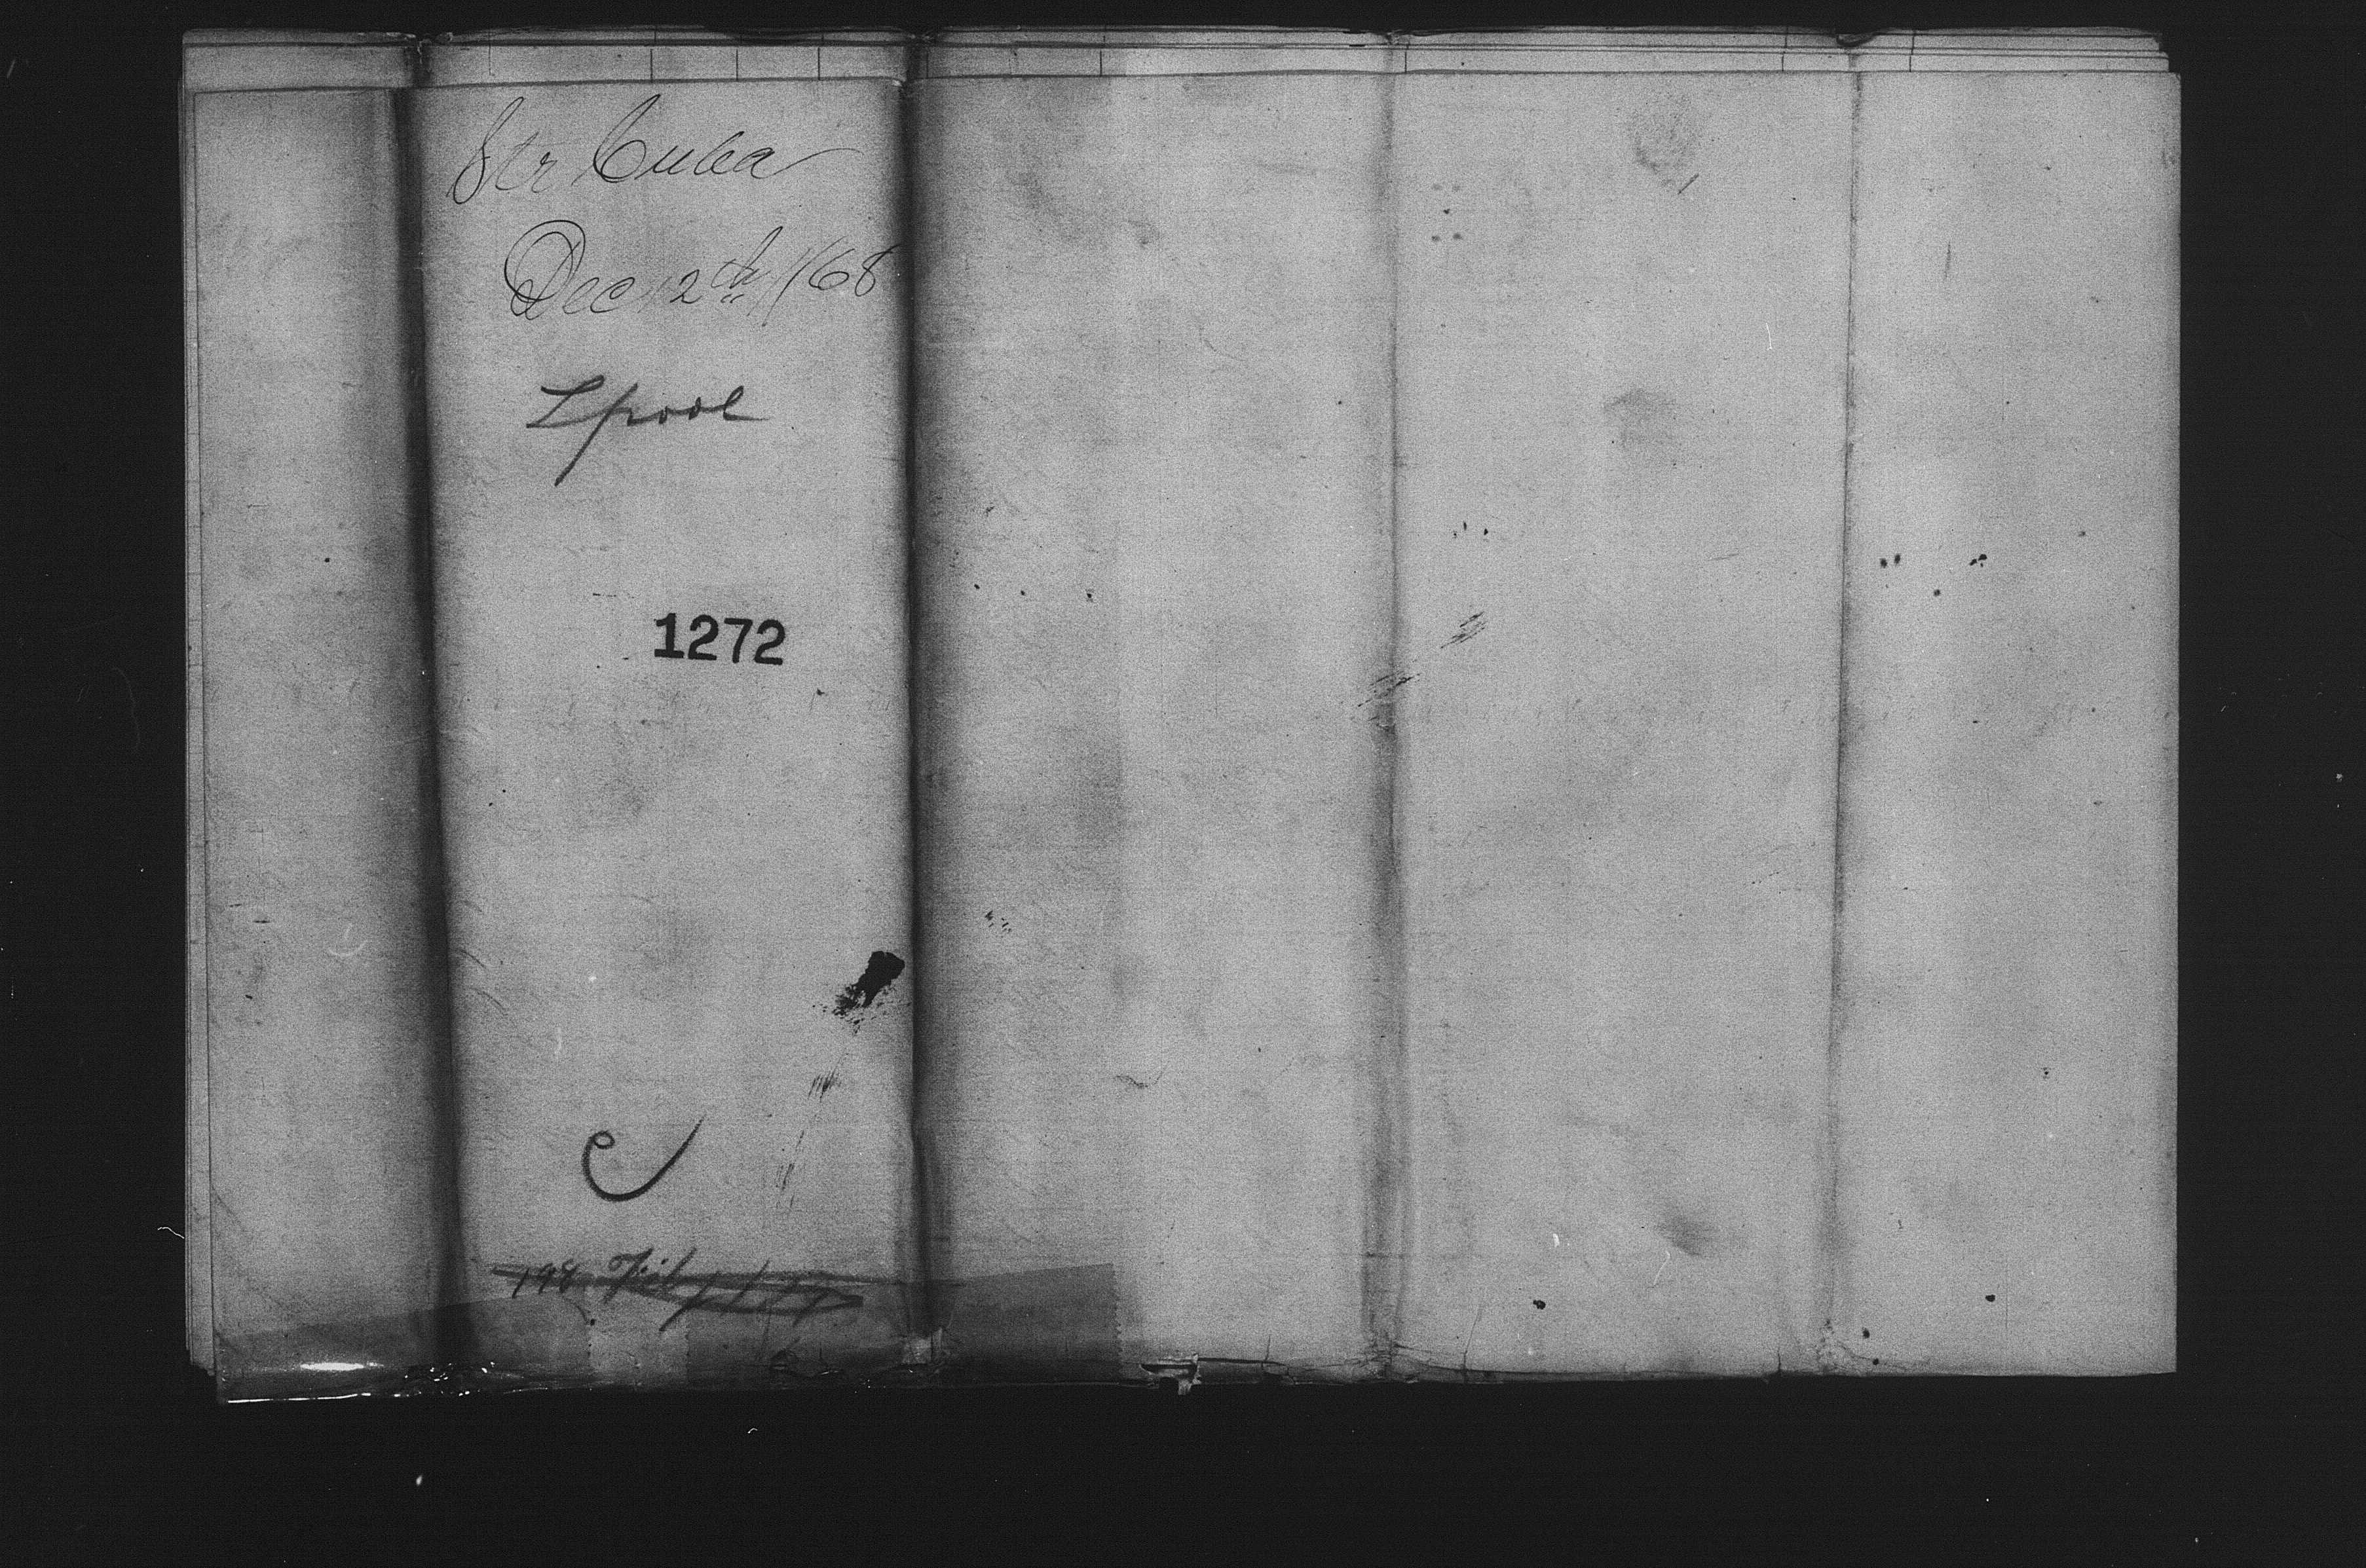 Str Cuba
Dec 12th /68
Lpool
1272
C
198